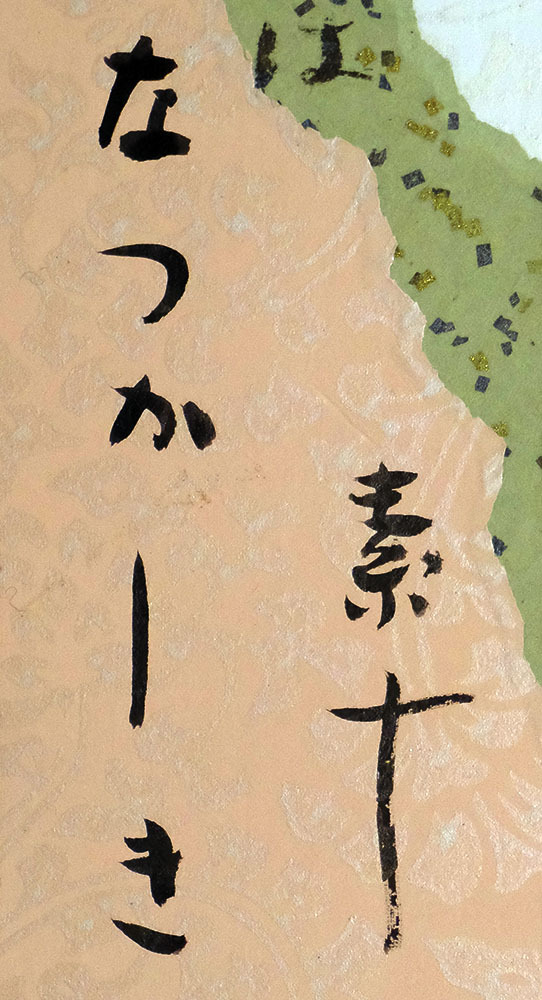 素十
は
なつかしき